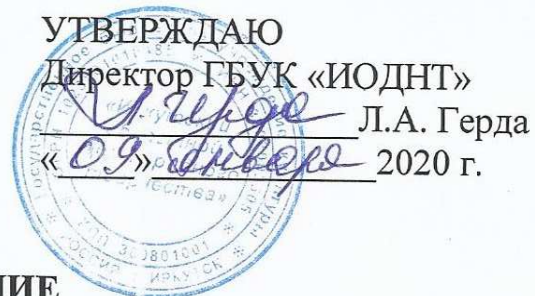 УТВЕРЖДАЮ
Директор ГБУК «ИОДНТ»
Л.А. Герда
«09» января 2020 г.
НИЕ